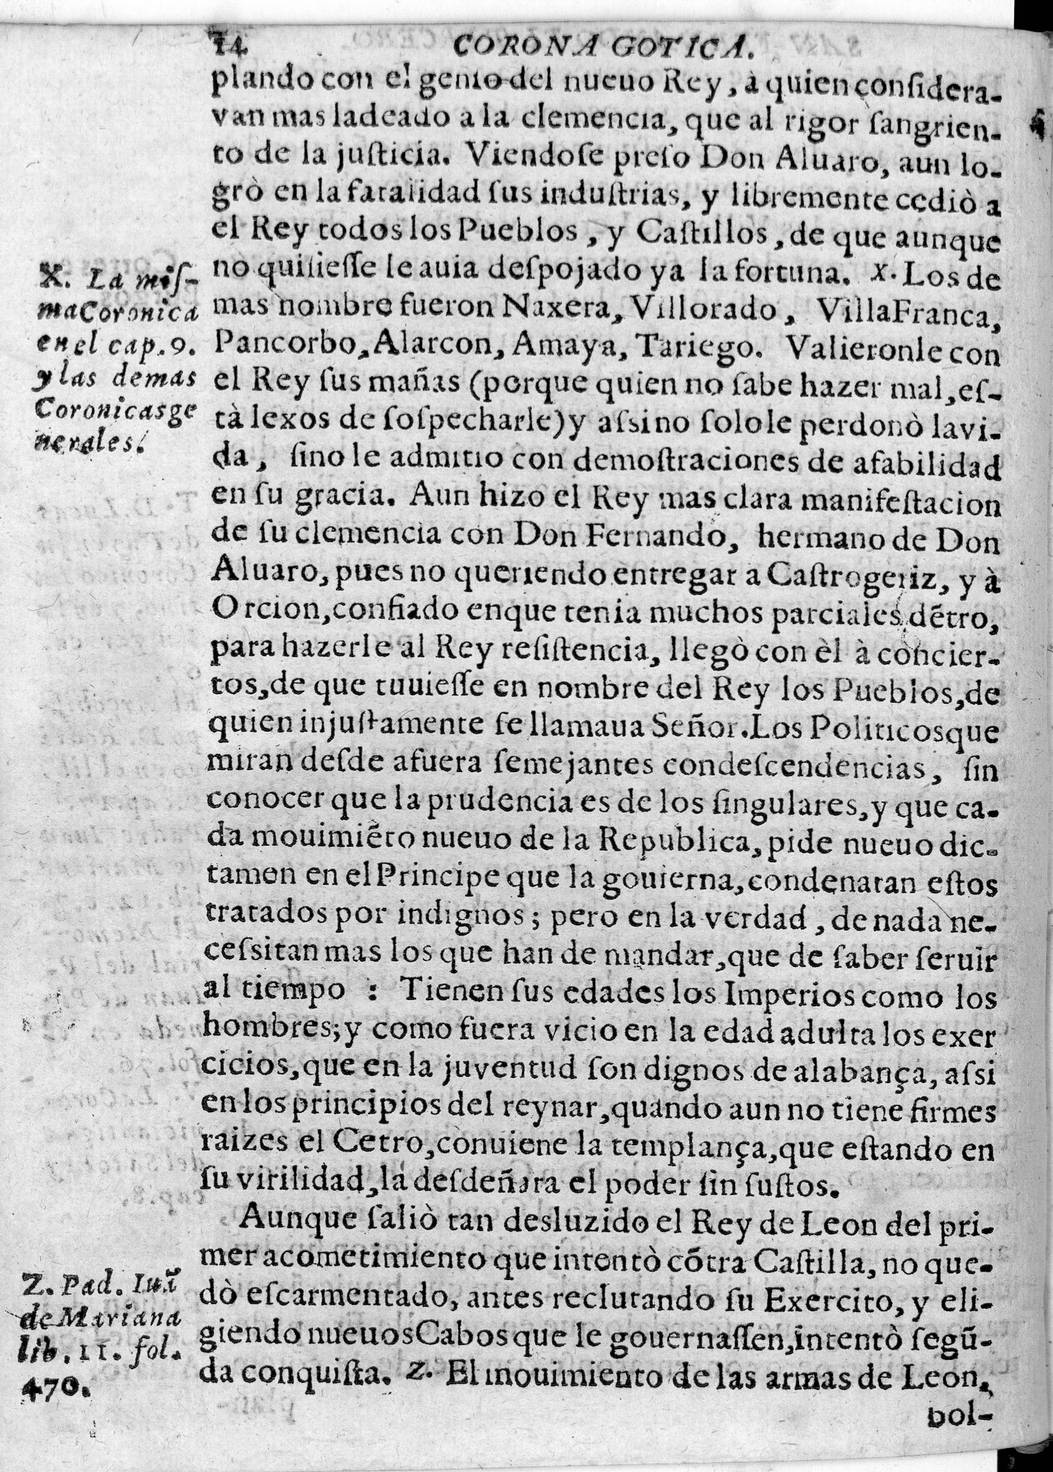 14 CORONA GOTICA.
plando con el genio del nueuo Rey, à quien conſidera-
van mas ladeado a la clemencia, que al rigor ſangrien-
to de la juſticia. Viendoſe preſo Don Aluaro, aun lo-
grò en la fatalidad ſus induſtrias, y libremente cediò a
el Rey todos los Pueblos, y Caſtillos, de que aunque
no quiſieſſe le auia deſpojado ya la fortuna. X. Los de
mas nombre fueron Naxera, Villorado, VillaFranca,
Pancorbo, Alarcon, Amaya, Tariego. Valieronle con
el Rey ſus mañas (porque quien no ſabe hazer mal, eſ-
tà lexos de ſoſpecharle) y aſsi no ſolo le perdonò la vi-
da, ſino le admitio con demoſtraciones de afabilidad
en ſu gracia. Aun hizo el Rey mas clara manifeſtacion
de ſu clemencia con Don Fernando, hermano de Don
Aluaro, pues no queriendo entregar a Caſtrogeriz, y à
Orcion, confiado enque tenia muchos parciales dētro,
para hazerle al Rey reſiſtencia, llegò con èl à concier-
tos, de que tuuieſſe en nombre del Rey los Pueblos, de
quien injuſtamente ſe llamaua Señor. Los Politicos que
miran deſde afuera ſemejantes condeſcendencias, ſin
conocer que la prudencia es de los ſingulares, y que ca-
da mouimiēto nueuo de la Republica, pide nueuo dic-
tamen en el Principe que la gouierna, condenaran eſtos
tratados por indignos; pero en la verdad, de nada ne-
ceſsitan mas los que han de mandar, que de ſaber ſeruir
al tiempo : Tienen ſus edades los Imperios como los
hombres; y como fuera vicio en la edad adulta los exer
cicios, que en la juventud ſon dignos de alabança, aſsi
en los principios del reynar, quando aun no tiene firmes
raizes el Cetro, conuiene la templança, que eſtando en
ſu virilidad, la deſdeñara el poder ſin ſuſtos.
Aunque ſaliò tan desluzido el Rey de Leon del pri-
mer acometimiento que intentò cōtra Caſtilla, no que-
dò eſcarmentado, antes reclutando ſu Exercito, y eli-
giendo nueuos Cabos que le gouernaſſen, intentò ſegū-
da conquiſta. Z. El mouimiento de las armas de Leon,
bol-
X. La miſ-
ma Coronica
en el cap. 9.
y las demas
Coronicas ge
nerales.
Z. Pad. Iuā
de Mariana
lib. 11. fol.
470.